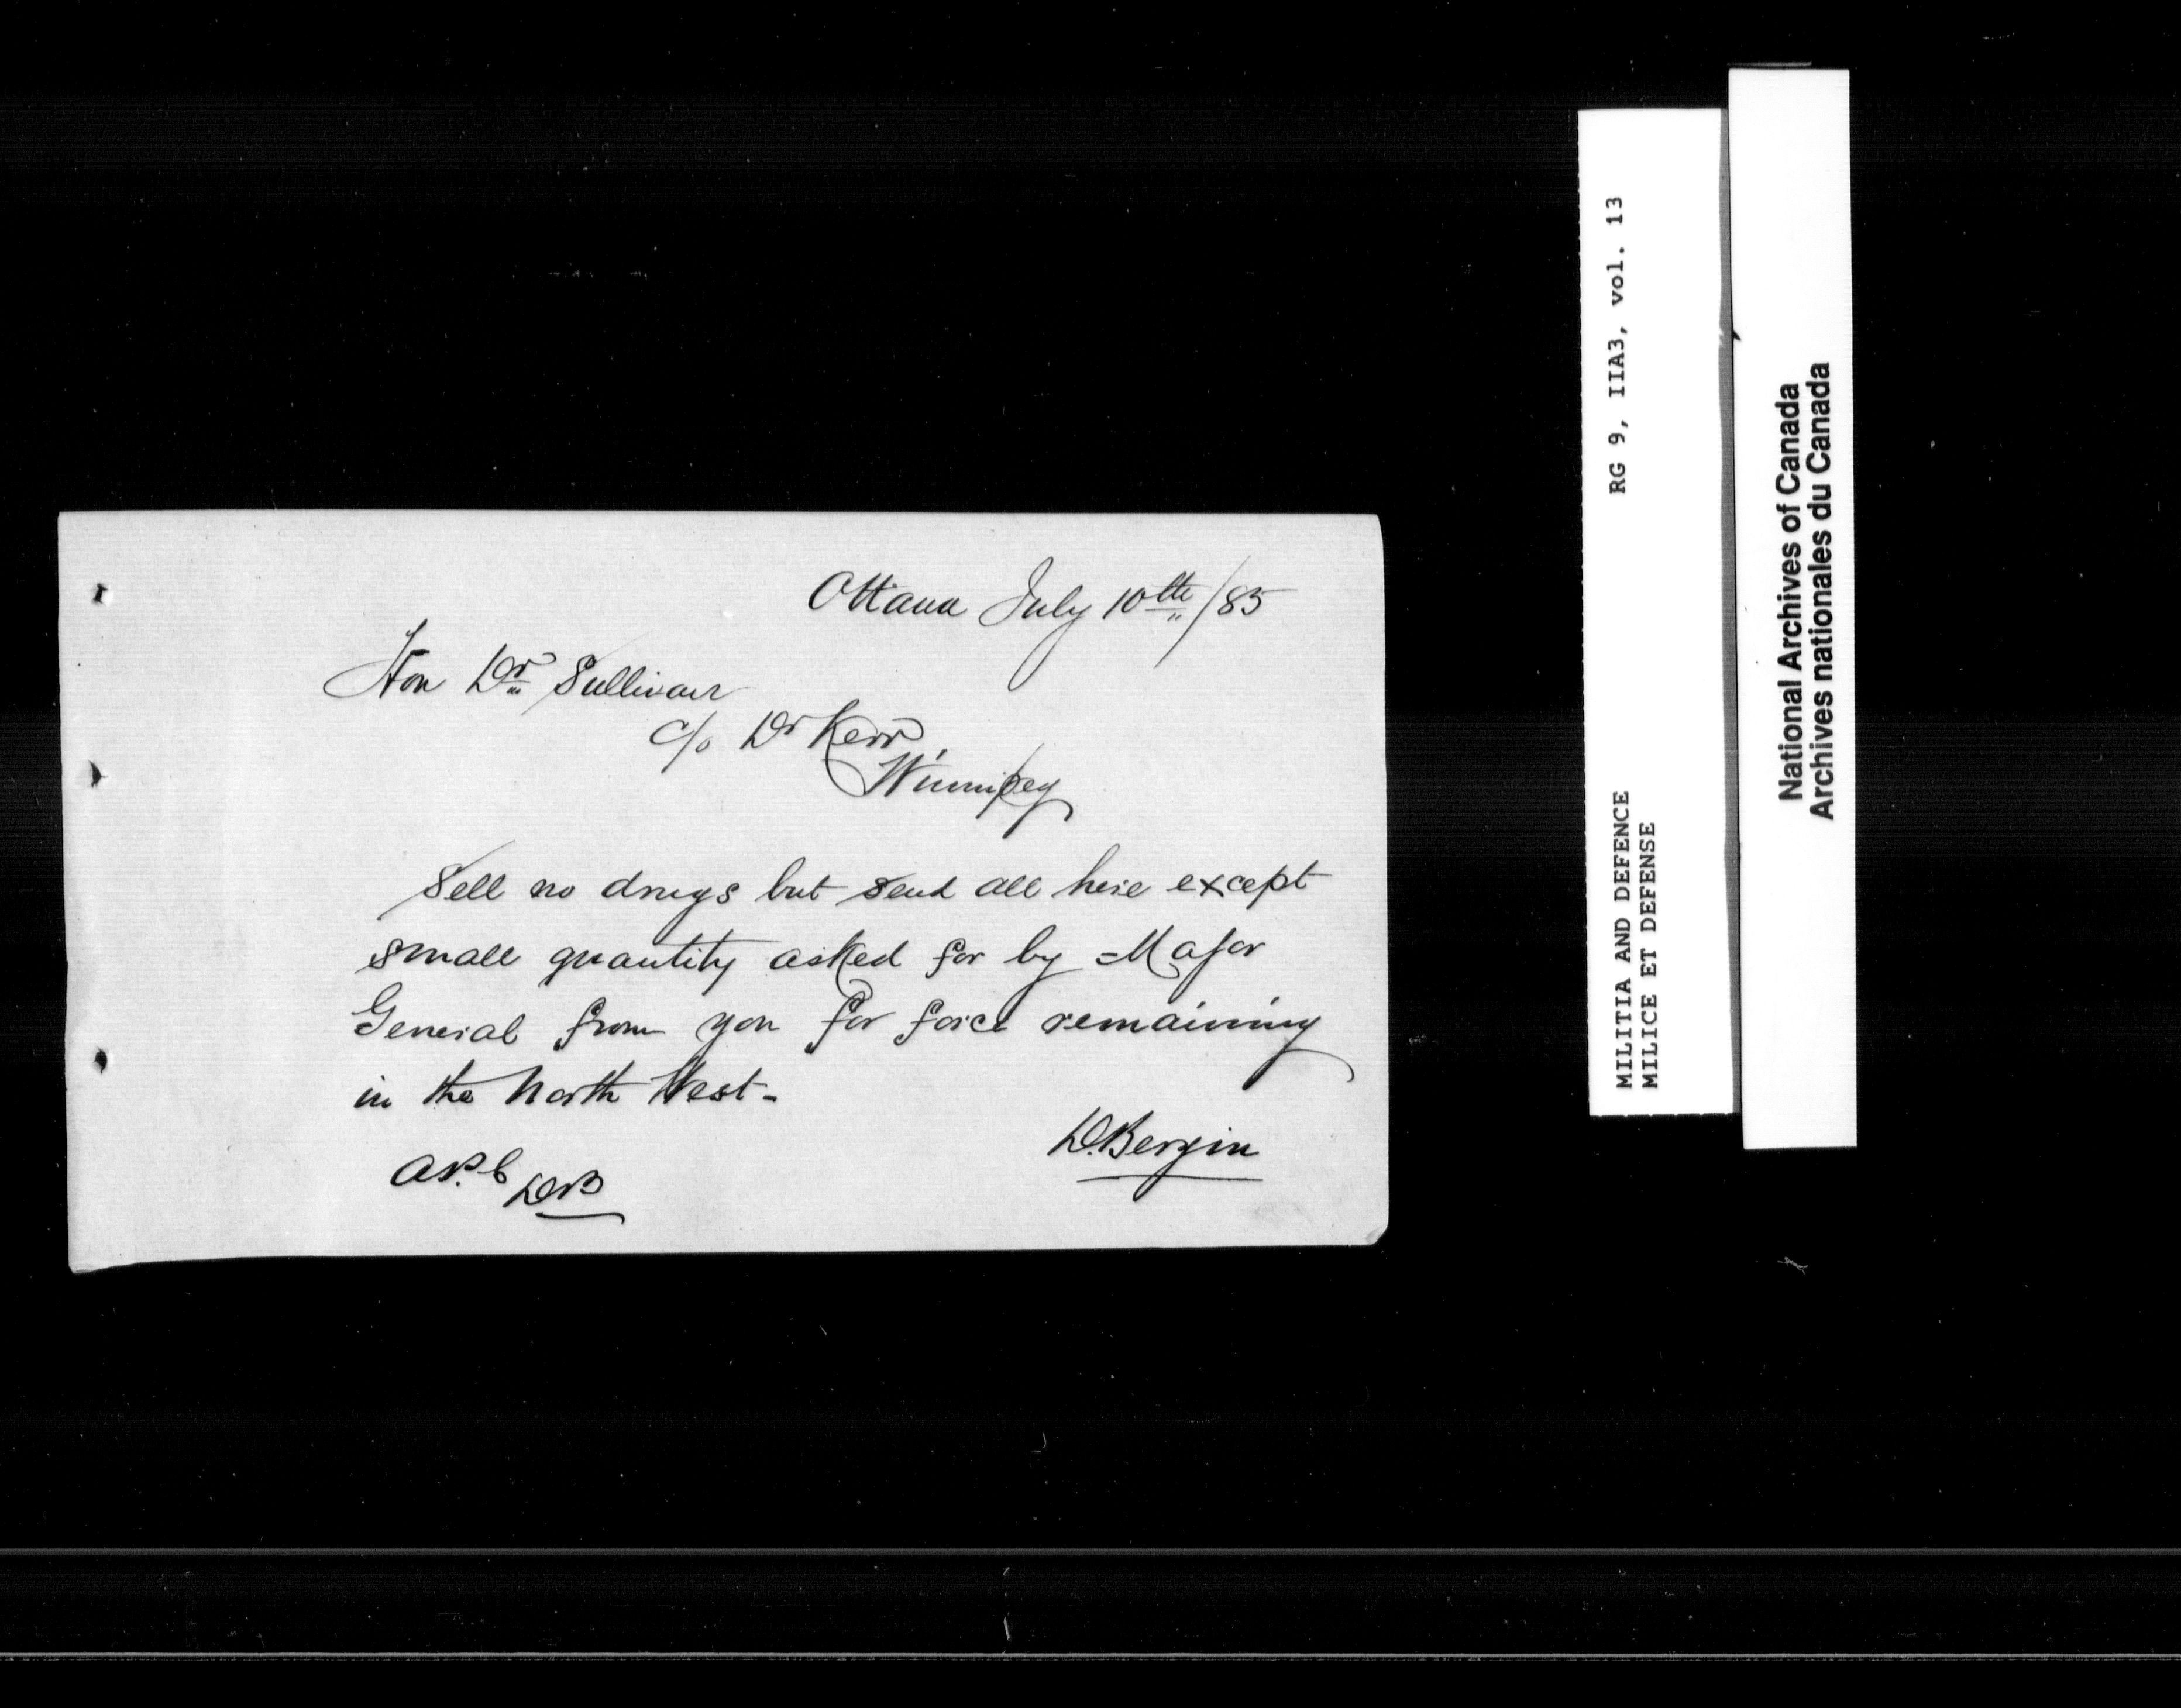 Ottawa July 10th /85
Hon Dr Sullivan
c/o Dr Kerr
Winnipeg
Sell no drugs but send all here except
small quantity asked for by Major
General from you for force remaining
in the North West-
D. Bergin
DB
RG 9, IIA3, vol. 13
MILITIA AND DEFENCE
MILICE ET DEFENSE
National Archives of Canada
Archives nationales du Canada